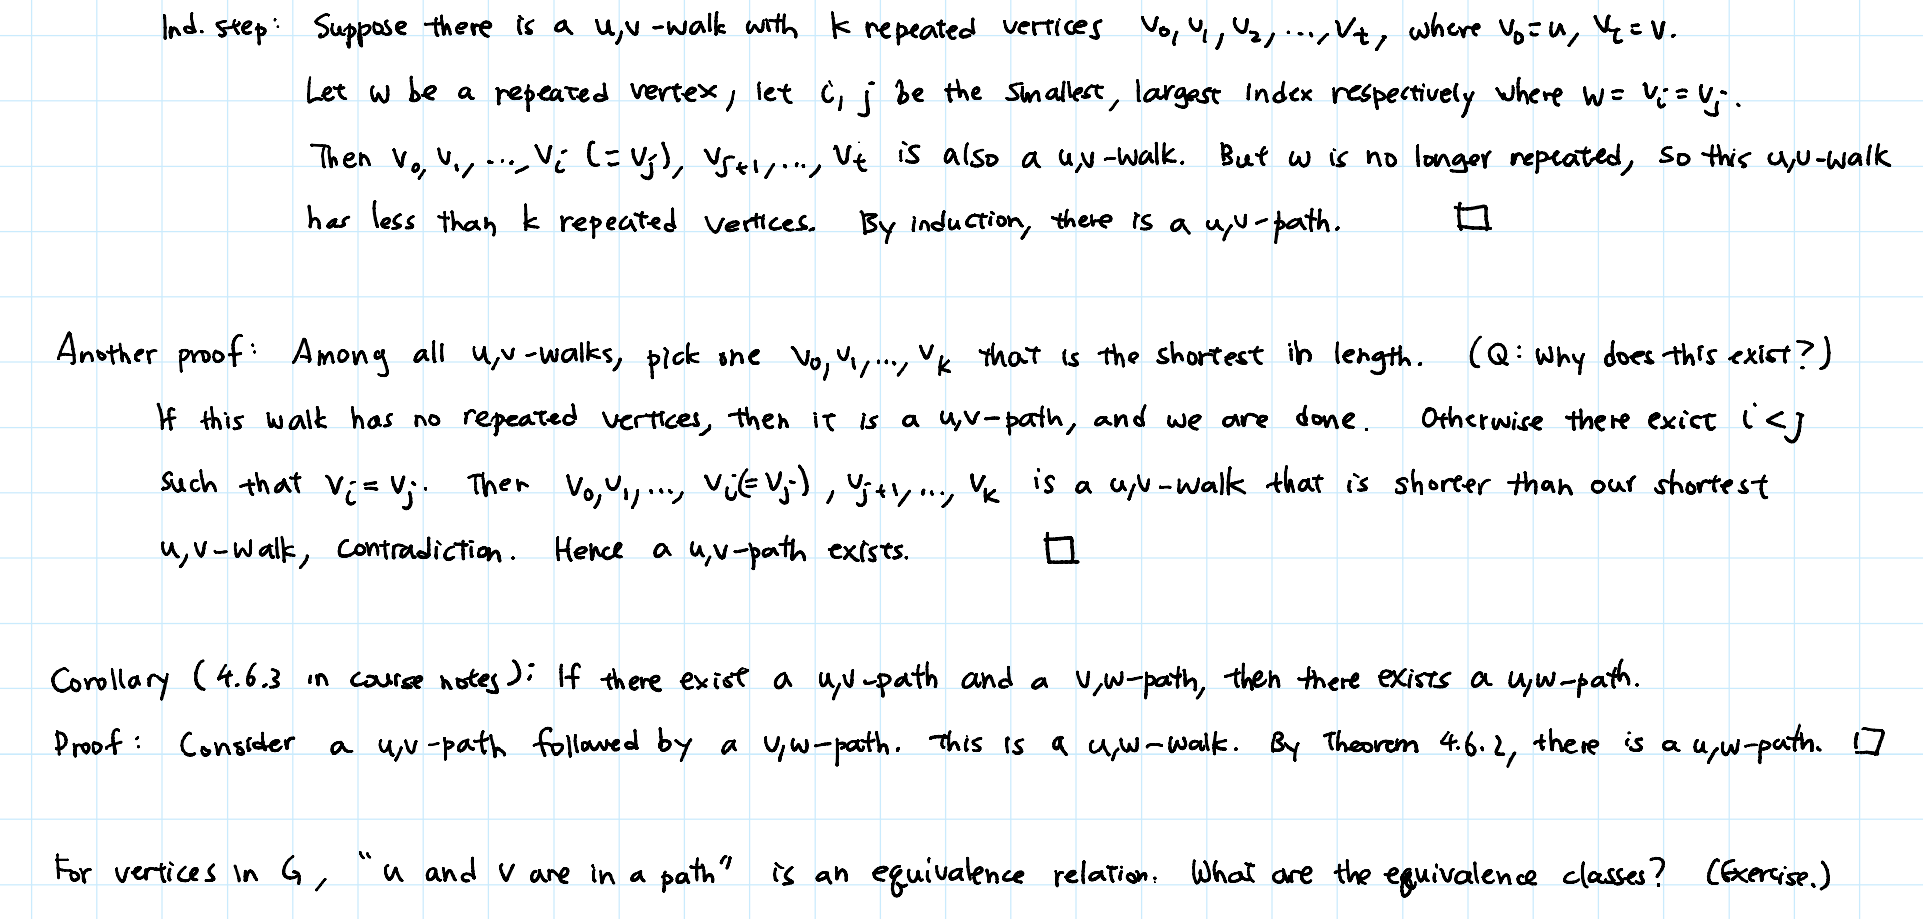 Ind. step: Suppose there is a u,v-walk with k repeated vertices v₀, v₁, v₂, ..., vₜ, where v₀=u, vₜ=v.
Let w be a repeated vertex, let i, j be the smallest, largest index respectively where w = vᵢ = vⱼ.
Then v₀, v₁, ..., vᵢ (= vⱼ), vⱼ₊₁, ..., vₜ is also a u,v-walk. But w is no longer repeated, so this u,v-walk
has less than k repeated vertices. By induction, there is a u,v-path. □
Another proof: Among all u,v-walks, pick one v₀, v₁, ..., vₖ that is the shortest in length. (Q: Why does this exist?)
If this walk has no repeated vertices, then it is a u,v-path, and we are done. Otherwise there exist i<j
such that vᵢ = vⱼ. Then v₀, v₁, ..., vᵢ(= vⱼ), vⱼ₊₁, ..., vₖ is a u,v-walk that is shorter than our shortest
u,v-walk, contradiction. Hence a u,v-path exists. □
Corollary (4.6.3 in course notes): If there exist a u,v-path and a v,w-path, then there exists a u,w-path.
Proof: Consider a u,v-path followed by a v,w-path. This is a u,w-walk. By Theorem 4.6.2, there is a u,w-path. □
For vertices in G, "u and v are in a path" is an equivalence relation. What are the equivalence classes? (Exercise.)